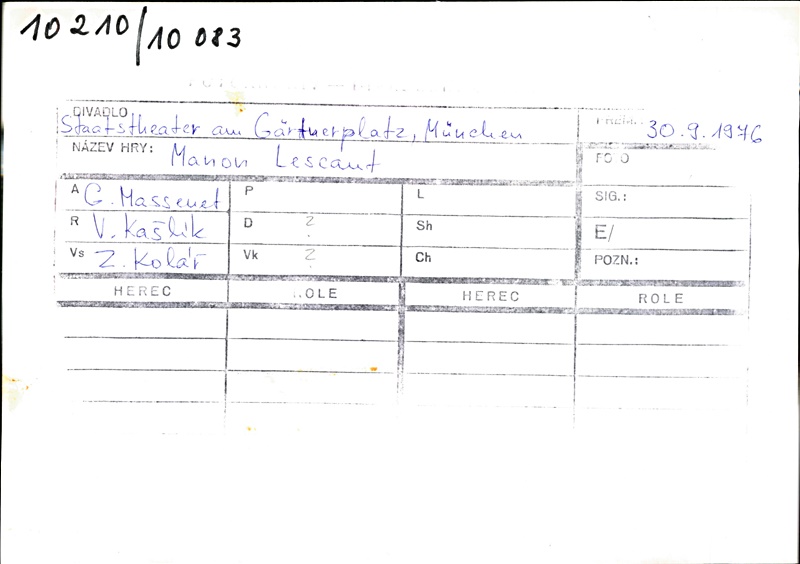 10 210/10 083
DIVADLO
Staatstheater am Gärtnerplatz, München 30.9.1976
NÁZEV HRY: Manon Lescaut
A G. Massenet P L SIG.:
R V. Kašlík D ? Sh E/
Vs Z. Kolář Vk ? Ch POZN.:
HEREC ROLE HEREC ROLE